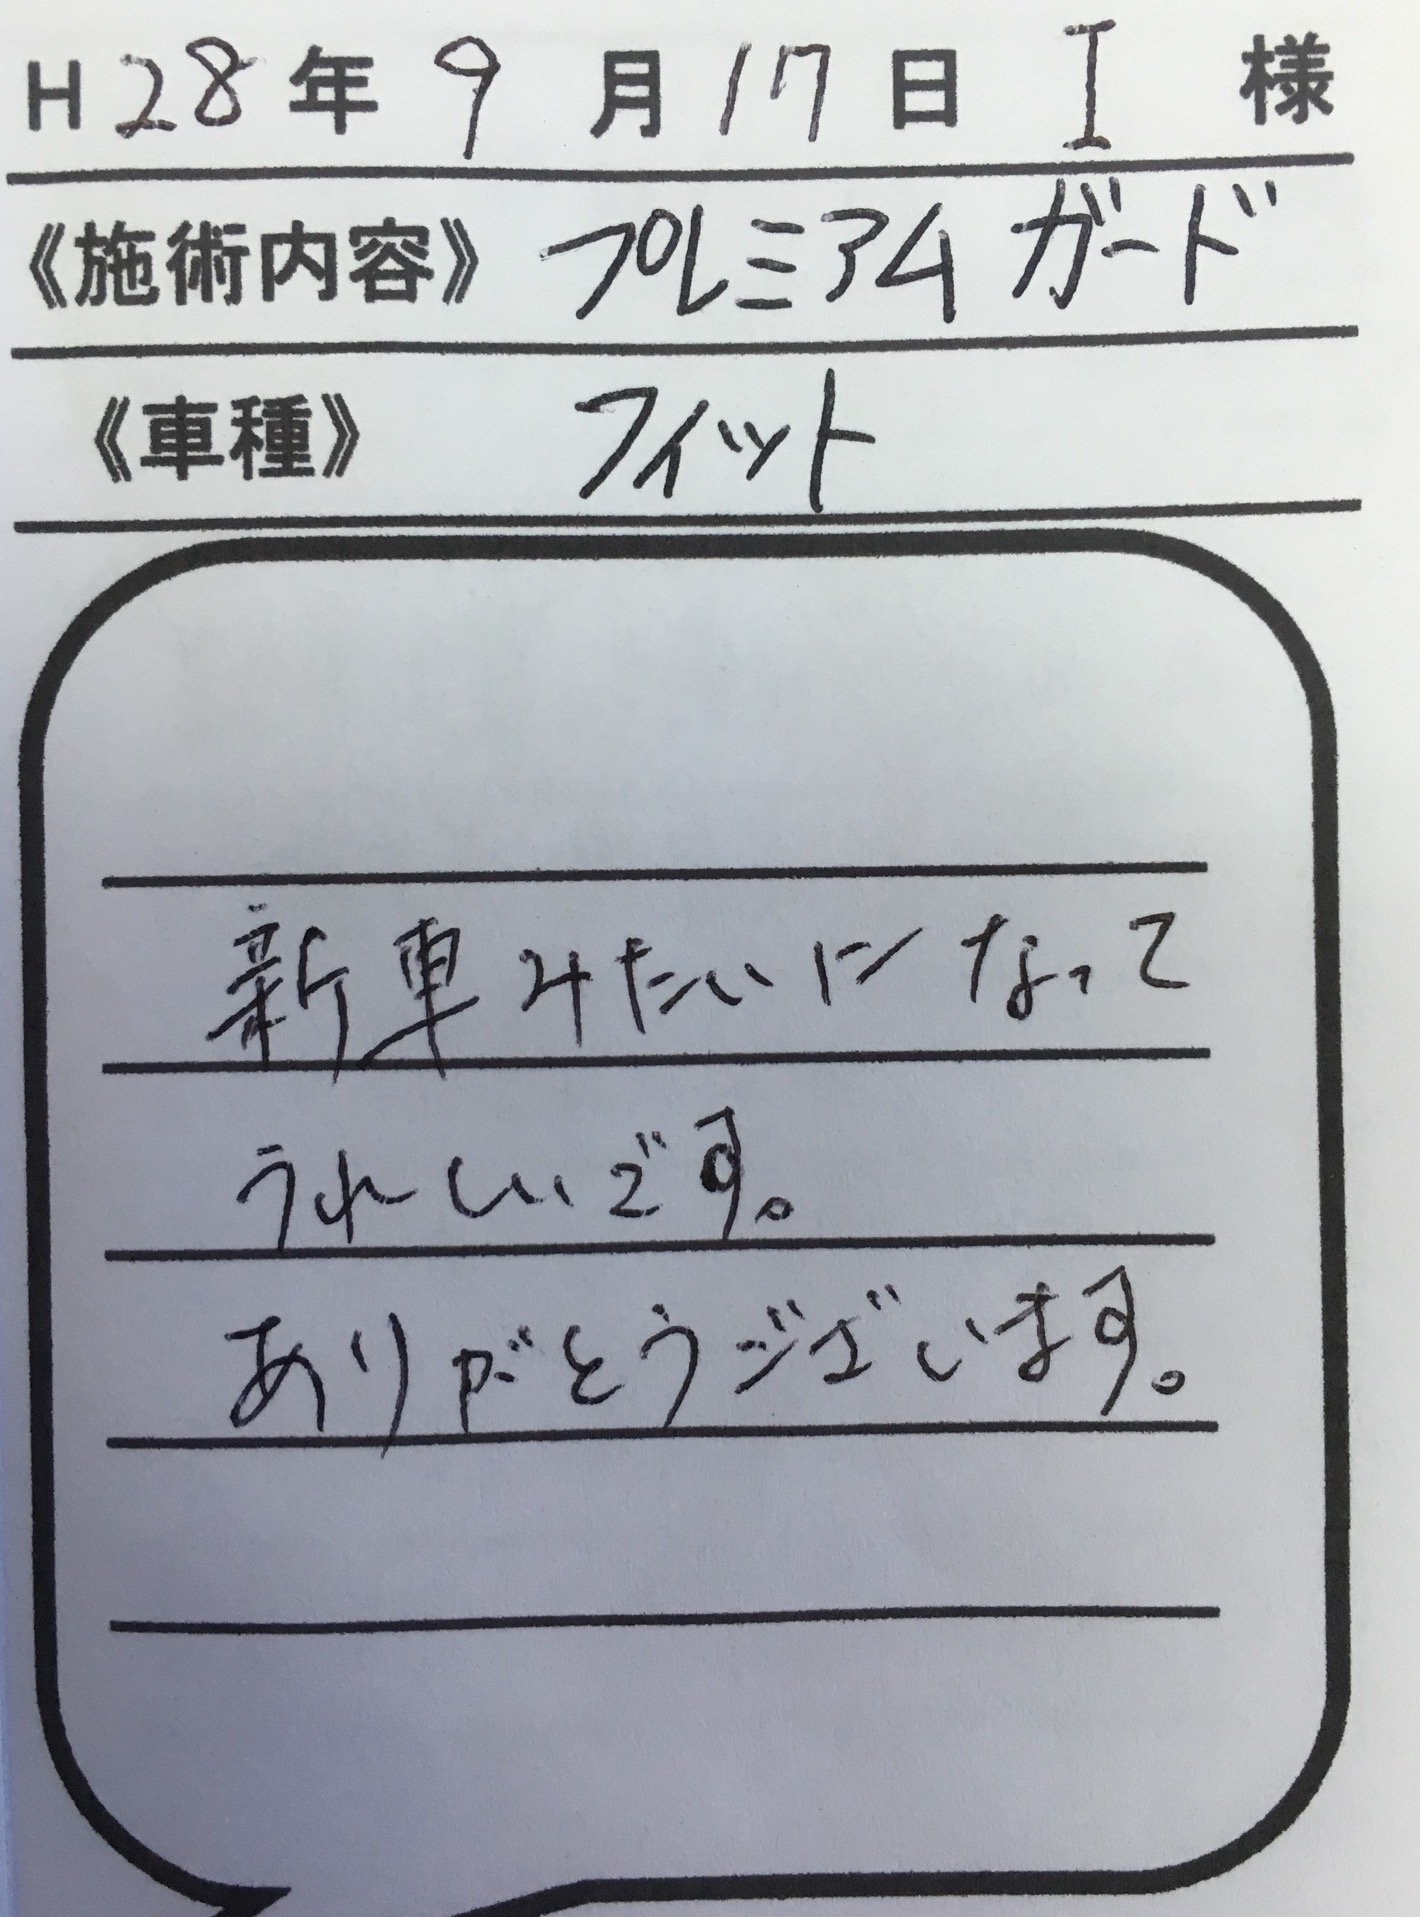 H28年9月17日 I 様
《施術内容》 プレミアムガード
《車種》 フィット
新車みたいになって
うれしいです。
ありがとうございます。